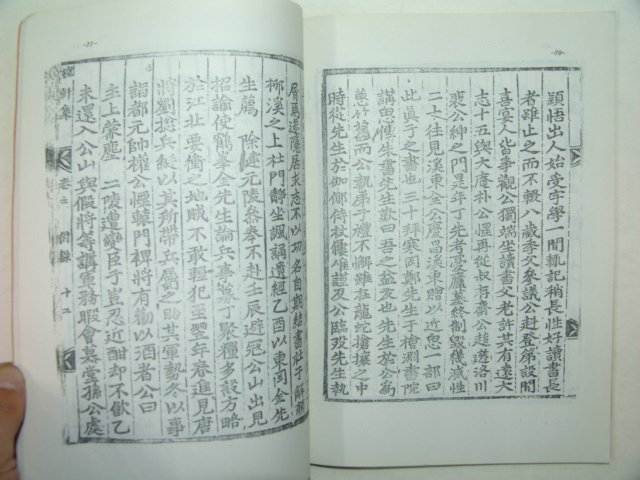 -70-
穎悟出人始受字學一聞輒記稍長性好讀書長
者雖止之而不輟八歲季父參議公赴登第設聞
喜宴人皆爭觀公獨端坐讀書父老許其有遠大
志十五與大庵朴公惺再從叔存齋公趨遊洛川
裵公紳之門是年丁先考憂廬墓終制毀幾滅性
二十往見溪東金公慶昌溪東贈以近思一部曰
此真子之書也三十拜寒岡鄭先生于檜淵書院
講思傳朱書先生歎曰吾之益友也先生於公為
忘年舊而公執弟子禮不懈雖在龍蛇搶攘之中
時從先生於伽倻侍杖屨唯謹及公臨歿先生執
-71-
屑爲遂隱居求志不以功名自期結書社于
柳溪之上杜門靜坐諷誦遺經乙酉以東岡金先
生薦 除健元陵參奉不赴壬辰避寇公山出見
招諭使鶴峯金先生論兵事募丁聚糧多設方略
於江北要衝之地賊不敢輕犯至翌年春進見唐
將劉捴兵綎以其所帶兵屬之助其軍勢冬以事
詣都元帥權公慄轅門裨將有勸以酒者公曰
主上蒙塵 二陵遭變臣子豈忍近酣却不飲乙
未還入公山與假將等謀軍務暇會慕堂孫公處
卷二 附錄 十二